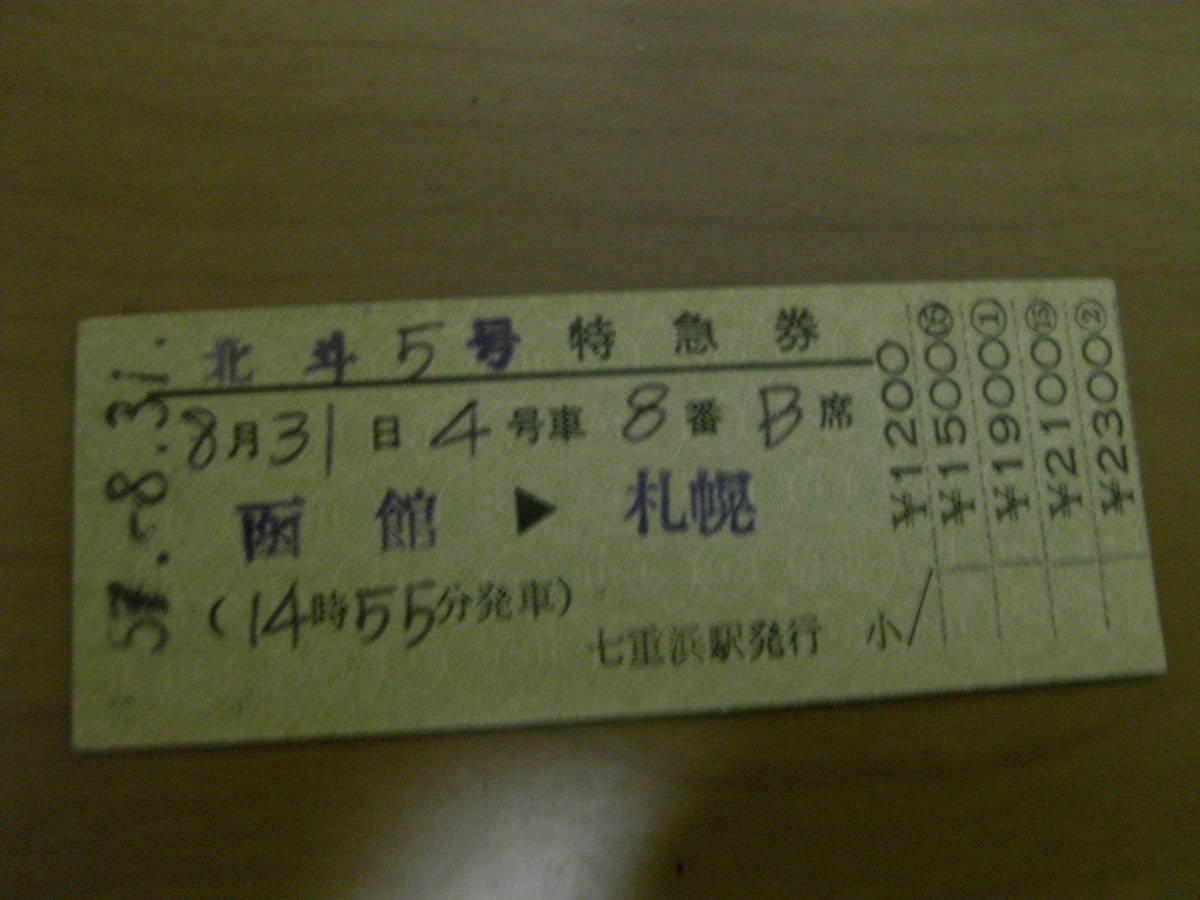 北斗5号特急券
8月31日4号車8番B席
函館▶札幌
(14時55分発車)
七重浜駅発行 小
57.-8.31.
¥1200
¥1500
¥1900①
¥2100⑮
¥2300②